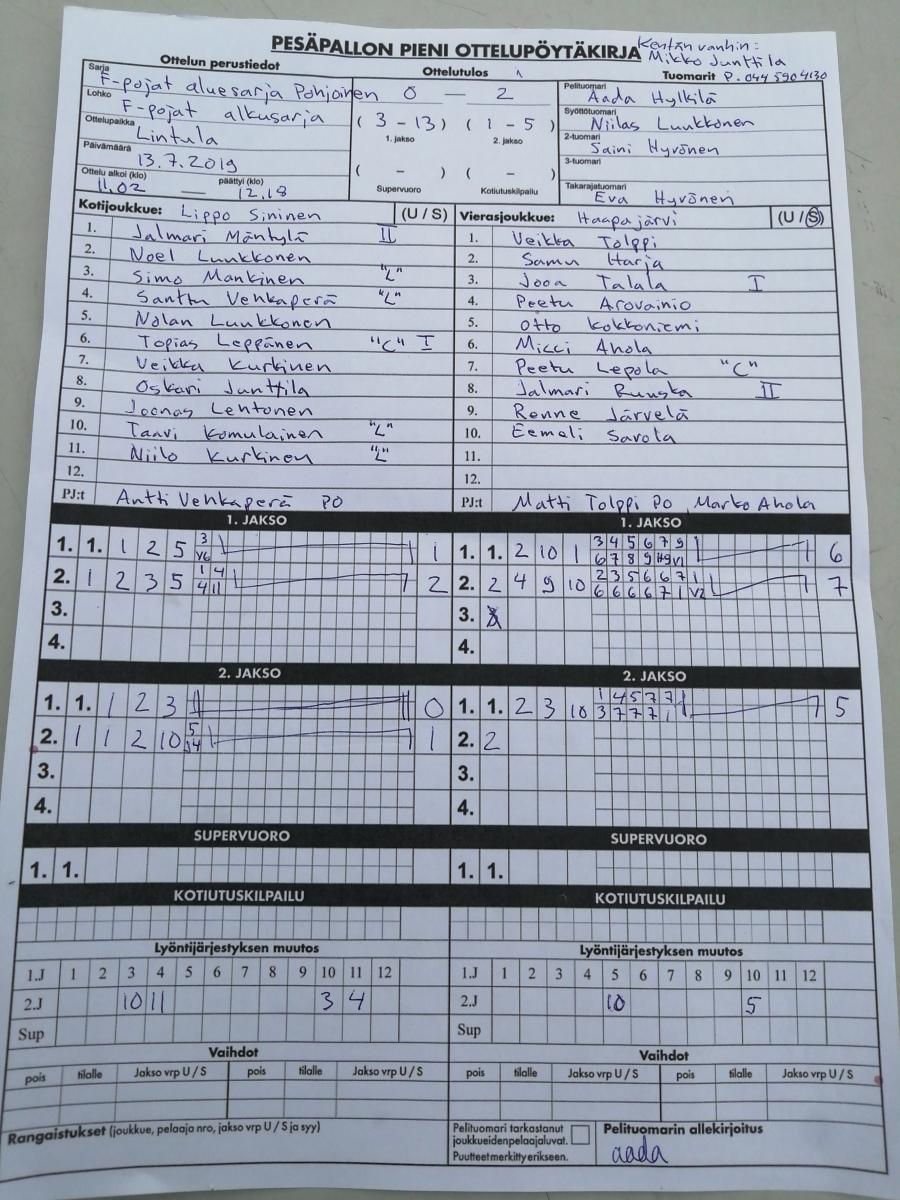 PESÄPALLON PIENI OTTELUPÖYTÄKIRJA
Kentän vanhin:
Mikko Junttila
P. 044 590 4130
Ottelun perustiedot
Ottelutulos
Tuomarit
Sarja
F-pojat aluesarja Pohjoinen
Lohko
F-pojat alkusarja
Ottelupaikka
Lintula
Päivämäärä
13.7.2019
Ottelu alkoi (klo) päättyi (klo)
11.02 — 12.18
0 — 2
( 3 - 13 ) ( 1 - 5 )
1. jakso 2. jakso
( - ) ( - )
Supervuoro Kotiutuskilpailu
Pelituomari
Aada Hylkilä
Syöttötuomari
Niilas Luukkonen
2-tuomari
Saini Hyvönen
3-tuomari
Takarajatuomari
Eva Hyvönen
Kotijoukkue: Lippo Sininen (U / S)
1. Jalmari Mäntylä II
2. Noel Luukkonen
3. Simo Mankinen "L"
4. Santtu Vehkaperä "L"
5. Nolan Luukkonen
6. Topias Leppänen "C" I
7. Veikka Kurkinen
8. Oskari Junttila
9. Joonas Lehtonen
10. Taavi Komulainen "L"
11. Niilo Kurkinen "L"
12.
PJ:t Antti Vehkaperä PO
Vierasjoukkue: Haapajärvi (U / S)
1. Veikka Tolppi
2. Samu Harja
3. Jooa Talala I
4. Peetu Arovainio
5. Otto Kokkoniemi
6. Micci Ahola
7. Peetu Lepola "C"
8. Jalmari Ruuska II
9. Renne Järvelä
10. Eemeli Savola
11.
12.
PJ:t Matti Tolppi PO, Marko Ahola
1. JAKSO
1. 1. 1 2 5 3 1
V6
2. 1 2 3 5 1 4 2
4 11
3.
4.
1. JAKSO
1. 1. 2 10 1 3 4 5 6 7 9 6
6 7 8 9
2. 2 4 9 10 2 3 5 6 6 7 1 7
6 6 6 6 7 1 V2
3.
4.
2. JAKSO
1. 1. 1 2 3 0
2. 1 1 2 10 5 1
3.
4.
2. JAKSO
1. 1. 2 3 10 1 4 5 7 7 5
3 7 7 7 1
2. 2
3.
4.
SUPERVUORO
1. 1.
SUPERVUORO
1. 1.
KOTIUTUSKILPAILU
KOTIUTUSKILPAILU
Lyöntijärjestyksen muutos
1.J 1 2 3 4 5 6 7 8 9 10 11 12
2.J 10 11 3 4
Sup
Lyöntijärjestyksen muutos
1.J 1 2 3 4 5 6 7 8 9 10 11 12
2.J 10 5
Sup
Vaihdot
pois tilalle Jakso vrp U / S pois tilalle Jakso vrp U / S
Vaihdot
pois tilalle Jakso vrp U / S pois tilalle Jakso vrp U / S
Rangaistukset (joukkue, pelaaja nro, jakso vrp U / S ja syy)
Pelituomari tarkastanut
joukkueidenpelaajaluvat.
Puutteet merkitty erikseen.
Pelituomarin allekirjoitus
aada